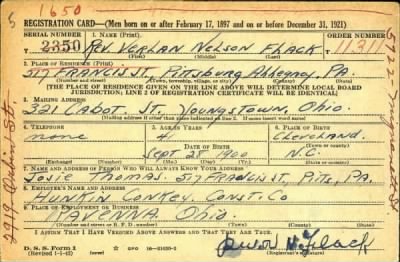 1650
REGISTRATION CARD—(Men born on or after February 17, 1897 and on or before December 31, 1921)
SERIAL NUMBER 1. NAME (Print) ORDER NUMBER
2350 Rev. VERLAN NELSON FLACK 11311
(First) (Middle) (Last)
2. PLACE OF RESIDENCE (Print)
517 FRANCIS ST. Pittsburg Allhegney, PA.
(Number and street) (Town, township, village, or city) (County) (State)
[THE PLACE OF RESIDENCE GIVEN ON THE LINE ABOVE WILL DETERMINE LOCAL BOARD
JURISDICTION; LINE 2 OF REGISTRATION CERTIFICATE WILL BE IDENTICAL]
3. MAILING ADDRESS
321 CABOT ST. YOUNGSTOWN, Ohio.
[Mailing address if other than place indicated on line 2. If same insert word same]
4. TELEPHONE 5. AGE IN YEARS 6. PLACE OF BIRTH
none 41 Cleveland
DATE OF BIRTH (Town or county)
SEPT 28 1900 N.C.
(Exchange) (Number) (Mo.) (Day) (Yr.) (State or country)
7. NAME AND ADDRESS OF PERSON WHO WILL ALWAYS KNOW YOUR ADDRESS
Thomas. 517 FRANCIS ST., Pitts, PA.
8. EMPLOYER'S NAME AND ADDRESS
HUNKIN CONKEY CONST. CO
9. PLACE OF EMPLOYMENT OR BUSINESS
RAVENNA. Ohio.
(Number and street or R. F. D. number) (Town) (County) (State)
I AFFIRM THAT I HAVE VERIFIED ABOVE ANSWERS AND THAT THEY ARE TRUE.
D. S. S. Form 1
(Revised 1-1-42) GPO 16—21630-2
Flack